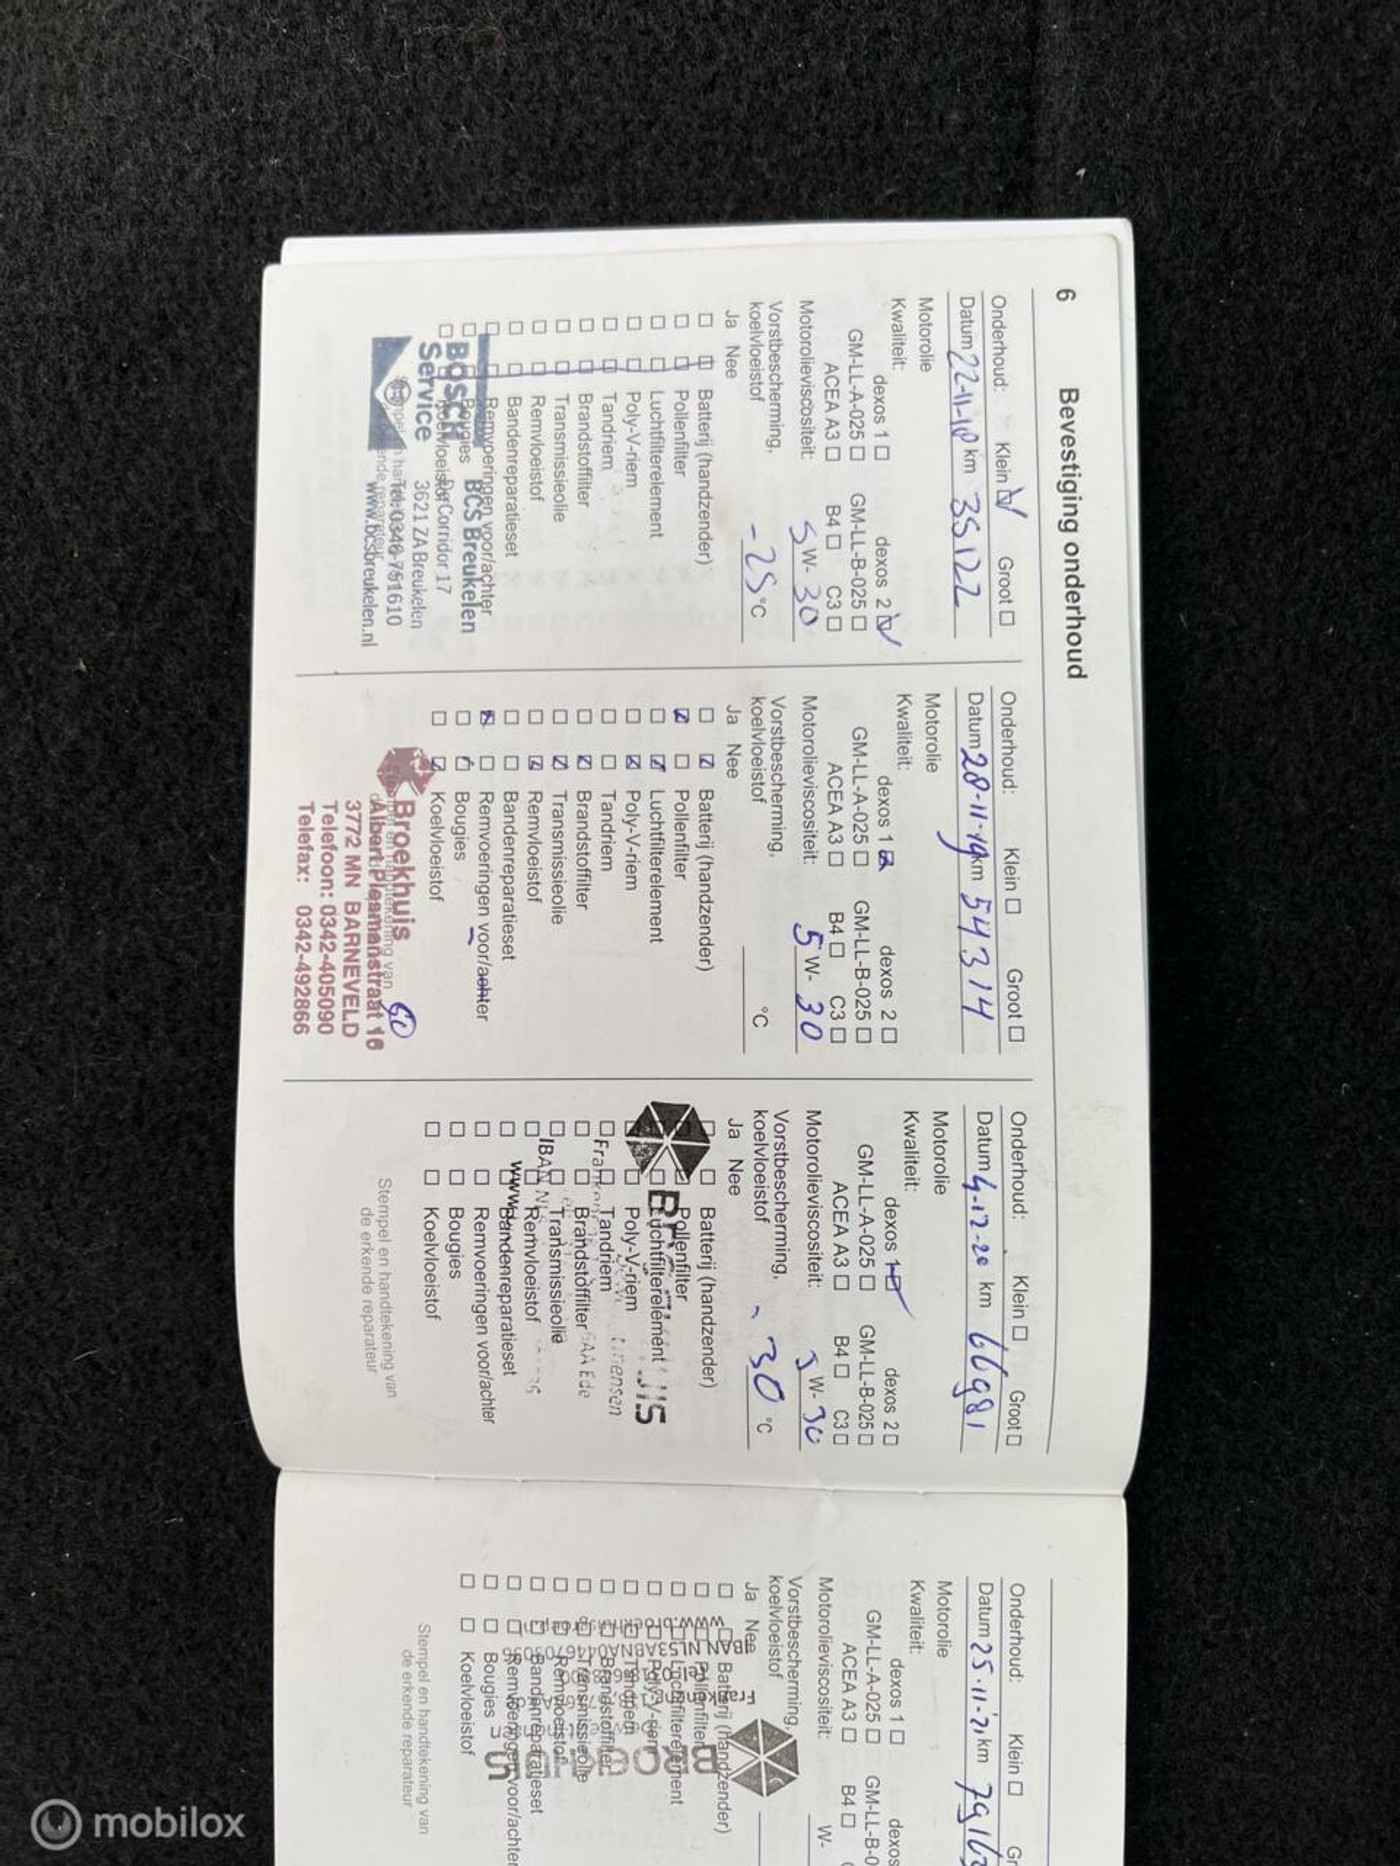 6 Bevestiging onderhoud
Onderhoud: Klein Groot
Datum 22-11-18 km 35122
Motorolie
Kwaliteit: dexos 1 dexos 2
GM-LL-A-025 GM-LL-B-025
ACEA A3 B4 C3
Motorolieviscositeit: 5 W- 30
Vorstbescherming,
koelvloeistof -25 °C
Ja Nee
Batterij (handzender)
Pollenfilter
Luchtfilterelement
Poly-V-riem
Tandriem
Brandstoffilter
Transmissieolie
Remvloeistof
Bandenreparatieset
Remvoeringen voor/achter
Bougies
Koelvloeistof
BOSCH
Service
BCS Breukelen
De Corridor 17
3621 ZA Breukelen
Tel. 0346-751610
www.bcsbreukelen.nl
Onderhoud: Klein Groot
Datum 28-11-19 km 54314
Motorolie
Kwaliteit: dexos 1 dexos 2
GM-LL-A-025 GM-LL-B-025
ACEA A3 B4 C3
Motorolieviscositeit: 5 W- 30
Vorstbescherming,
koelvloeistof °C
Ja Nee
Batterij (handzender)
Pollenfilter
Luchtfilterelement
Poly-V-riem
Tandriem
Brandstoffilter
Transmissieolie
Remvloeistof
Bandenreparatieset
Remvoeringen voor/achter
Bougies
Koelvloeistof
Broekhuis
Albert Plesmanstraat 16
3772 MN BARNEVELD
Telefoon: 0342-405090
Telefax: 0342-492866
Onderhoud: Klein Groot
Datum 4-12-20 km 66981
Motorolie
Kwaliteit: dexos 1 dexos 2
GM-LL-A-025 GM-LL-B-025
ACEA A3 B4 C3
Motorolieviscositeit: 5 W- 30
Vorstbescherming,
koelvloeistof - 30 °C
Ja Nee
Batterij (handzender)
Pollenfilter
Luchtfilterelement
Poly-V-riem
Tandriem
Brandstoffilter
Transmissieolie
Remvloeistof
Bandenreparatieset
Remvoeringen voor/achter
Bougies
Koelvloeistof
Stempel en handtekening van
de erkende reparateur
Onderhoud: Klein
Datum 25-11-21 km
Motorolie
Kwaliteit: dexos 1 dexos
GM-LL-A-025 GM-LL-B-0
ACEA A3 B4
Motorolieviscositeit: W-
Vorstbescherming,
koelvloeistof
Ja Nee
Batterij (handzender)
Pollenfilter
Luchtfilterelement
Poly-V-riem
Tandriem
Brandstoffilter
Transmissieolie
Remvloeistof
Bandenreparatieset
Remvoeringen voor/achter
Bougies
Koelvloeistof
BROEKHUIS
Stempel en handtekening van
de erkende reparateur
mobilox